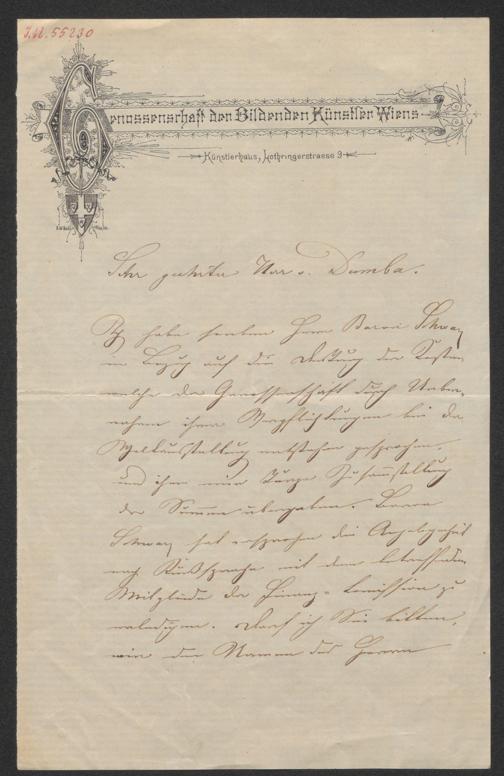 J.N. 55230
Genossenschaft der Bildenden Künstler Wiens
Künstlerhaus, Lothringerstrasse 9
Sehr geehrter Herr v. Dumba.
Ich habe soeben Herrn Baron Schwarz
in Bezug auf die Deckung der Kosten
welche der Genossenschaft durch Ueber-
nahme ihrer Verpflichtungen bei der
Weltausstellung entstehen gesprochen,
und ihm eine kurze Zusammenstellung
der Summen übergeben. Baron
Schwarz hat versprochen die Angelegenheit
nach Rücksprache mit dem betreffenden
Mitgliede der Finanz-Comission zu
erledigen. Darf ich Sie bitten,
mir den Namen des Herrn